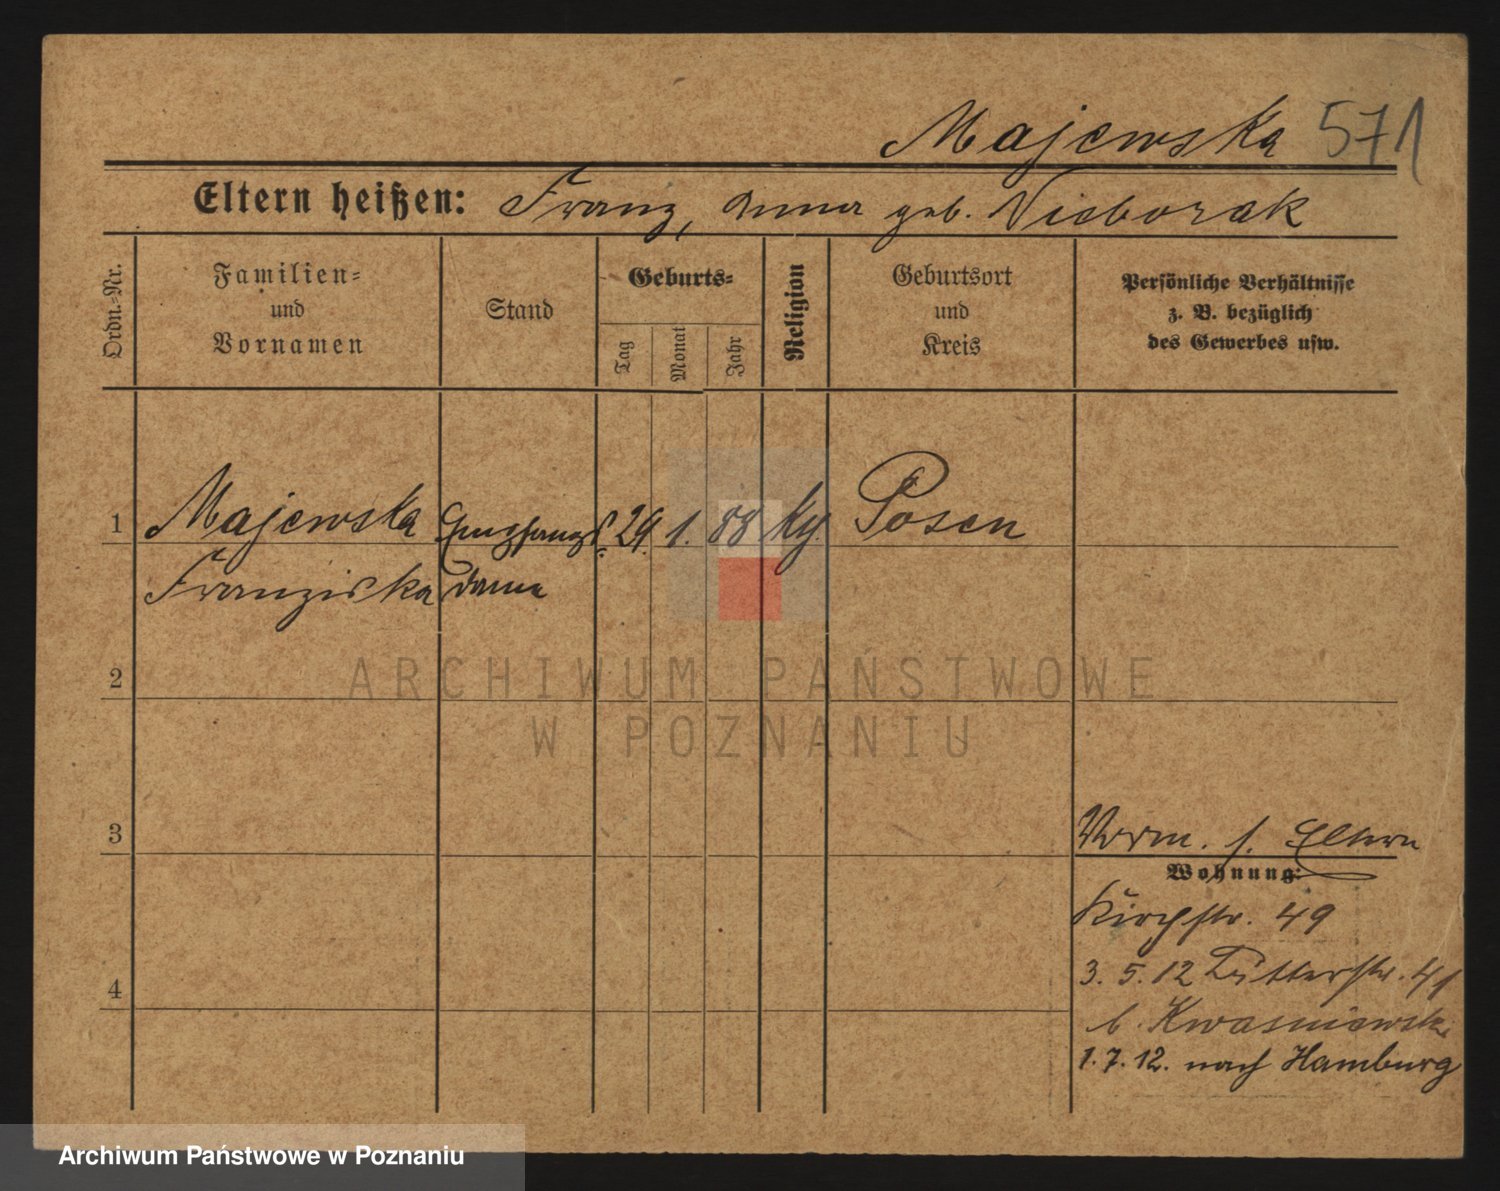 Majewska 571
Eltern heißen: Franz, Anna geb. Nieborak
Ordn.-Nr.
Familien-
und
Vornamen
Stand
Geburts-
Tag
Monat
Jahr
Religion
Geburtsort
und
Kreis
Persönliche Verhältnisse
z. B. bezüglich
des Gewerbes usw.
1 Majewska Empfangs 29. 1. 88 Posen
Franziska dame
2
3
Vorm. s. Eltern
Wohnung:
Kirchstr. 49
4
3. 5. 12 41
b. Kwasniewski
1. 7. 12. nach Hamburg
ARCHIWUM PAŃSTWOWE
W POZNANIU
Archiwum Państwowe w Poznaniu